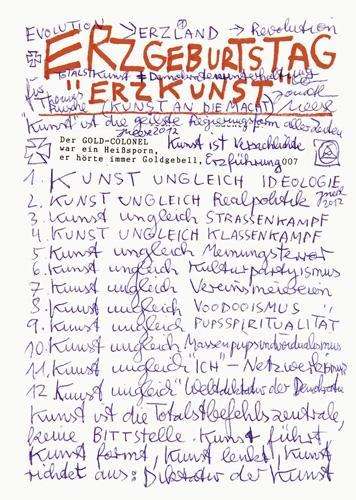 EVOLUTION → ERZLAND → Revolution
ERZGEBURTSTAG
TOTALSTKUNST ≠
für "ERZKUNST" Jonathan Meese
(KUNST AN DIE MACHT)
"Kunst" ist die geilste Regierungsform aller Zeiten
Meese 2012
Der GOLD-COLONEL Kunst ist Versachlichte
war ein Heißsporn,
er hörte immer Goldgebell, Erzführung 007
1. KUNST UNGLEICH IDEOLOGIE
2. KUNST UNGLEICH Realpolitik Meese 2012
3. Kunst ungleich STRASSENKAMPF
4. KUNST UNGLEICH KLASSENKAMPF
5. Kunst ungleich Meinungsterror
6. Kunst ungleich Kulturpartyismus
7. Kunst ungleich Vereinsmeiereien
8. Kunst ungleich VOODOOISMUS
9. Kunst ungleich PUPSSPIRITUALITÄT
10. Kunst ungleich Massenpupsindividualismus
11. Kunst ungleich "ICH"-Netzwerkerismus
12. Kunst ungleich "Weltdiktatur der Demokratie
Kunst ist die Totalstbefehlszentrale,
keine BITTSTELLE. Kunst führt,
Kunst formt, Kunst lenkt, Kunst
richtet aus: Diktatur der Kunst